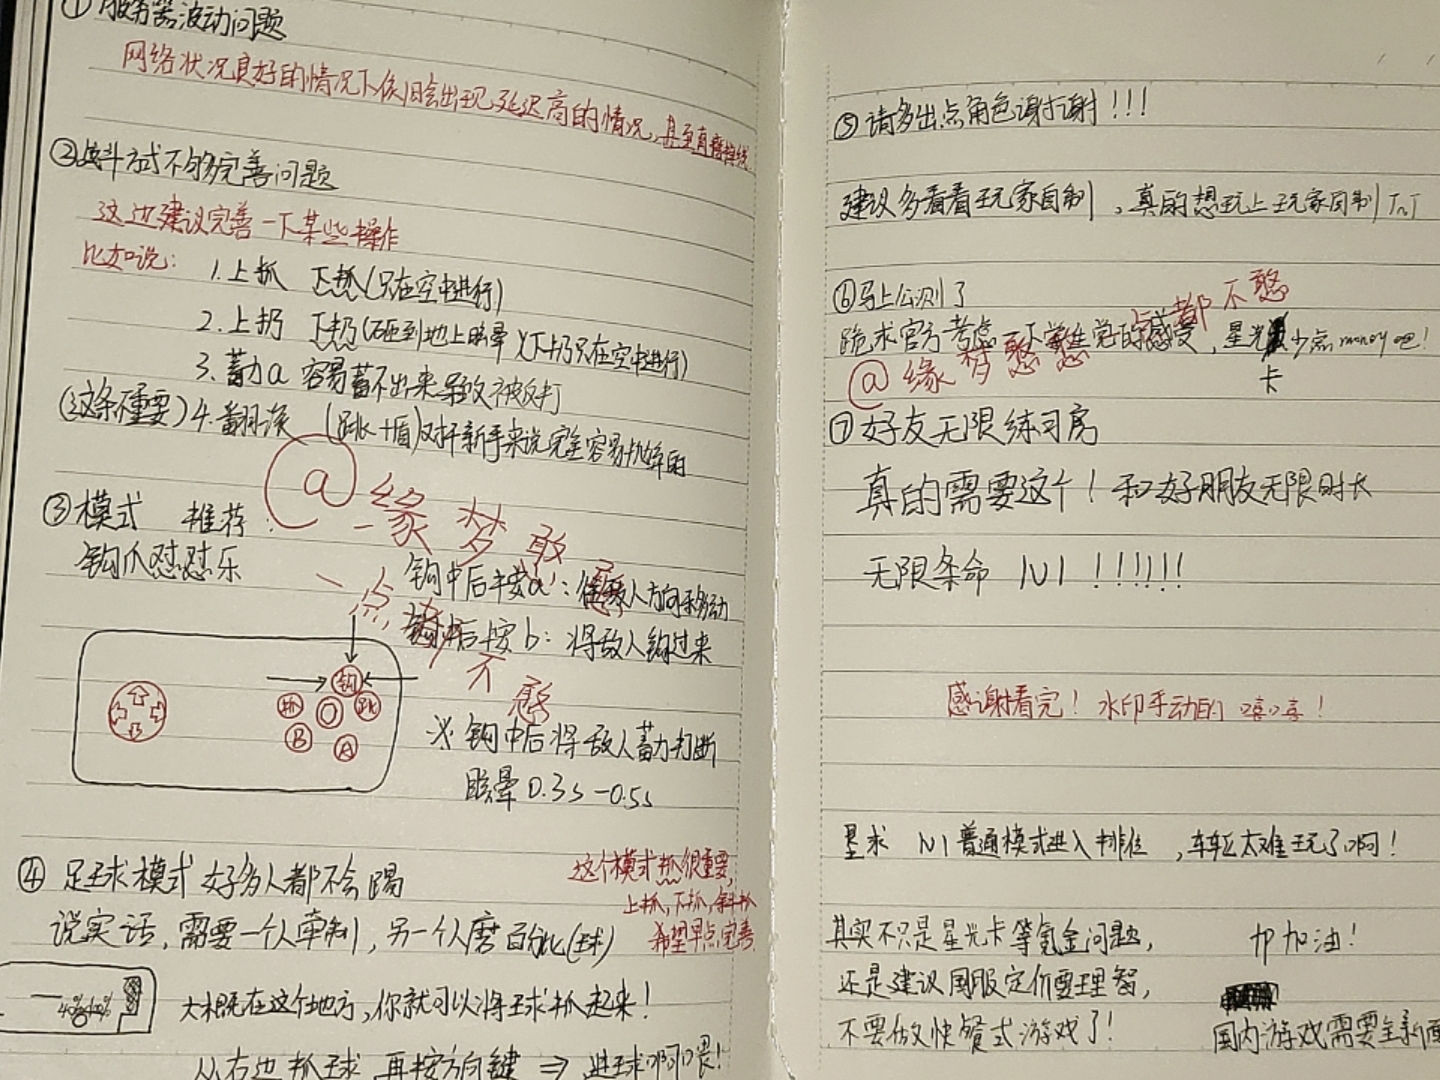 ① 服务器波动问题
网络状况良好的情况下依旧会出现延迟高的情况，甚至直接掉线
②战斗方式不够完善问题
这边建议完善一下某些操作
比如说：
1.上抓 下抓(只在空中进行)
2.上扔 下扔(砸到地上眩晕 ※下扔只在空中进行)
3.蓄力a 容易蓄不出来导致被反打
(这条不重要) 4.翻滚 (跳+盾)对于新手来说完全容易
@缘梦敢
一点都不憨
③模式 推荐：
钩爪怼怼乐
钩中后按a：往敌人方向移动
钩中后按b：将敌人钩过来
钩
抓
跳
B
A
※ 钩中后将敌人蓄力打断
眩晕0.3s-0.5s
④ 足球模式 好多人都不会踢
这个模式抓很重要，
上抓，下抓，斜抓
希望早点完善
说实话，需要一个人牵制，另一个人磨百分比(球)
大概在这个地方，你就可以将球抓起来！
从右边抓球 再按方向键 ⇒ 进球啊喂！
⑤ 请多出点角色谢谢！！！
建议多看看玩家自制，真的想玩上玩家自制TnT
⑥马上公测了
跪求官方考虑一下学生党的感受，星光卡少点money吧！
@缘梦憨憨一点都不憨
⑦ 好友无限练习房
真的需要这个！和好朋友无限时长
无限条命 1V1！！！！！！
感谢看完！水印手动的 嘻嘻！
垦求 1V1普通模式进入排位，车轮太难玩了啊！
其实不只是星光卡等氪金问题，
还是建议国服定价要理智，
不要做快餐式游戏了！
加油！
国内游戏需要全新面